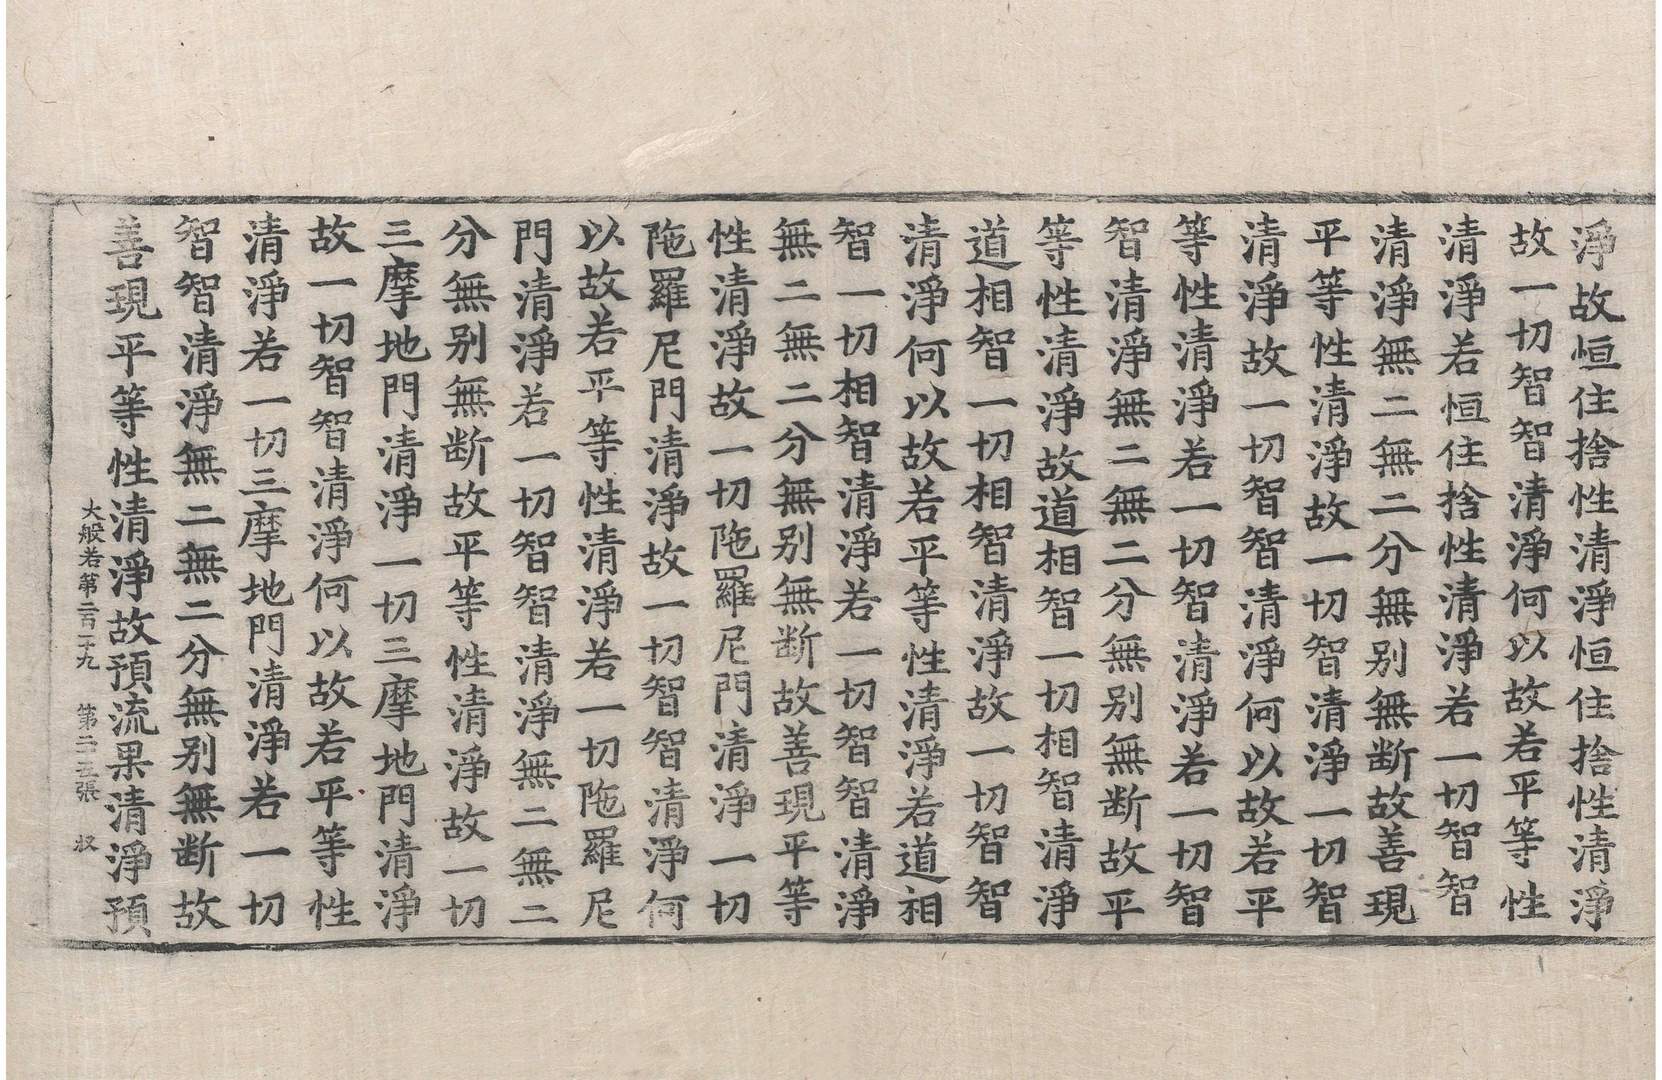 淨故恒住捨性清淨恒住捨性清淨
故一切智智清淨何以故若平等性
清淨若恒住捨性清淨若一切智智
清淨無二無二分無别無断故善現
平等性清淨故一切智清淨一切智
清淨故一切智智清淨何以故若平
等性清淨若一切智清淨若一切智
智清淨無二無二分無别無断故平
等性清淨故道相智一切相智清淨
道相智一切相智清淨故一切智智
清淨何以故若平等性清淨若道相
智一切相智清淨若一切智智清淨
無二無二分無别無断故善現平等
性清淨故一切陁羅尼門清淨一切
陁羅尼門清淨故一切智智清淨何
以故若平等性清淨若一切陁羅尼
門清淨若一切智智清淨無二無二
分無别無断故平等性清淨故一切
三摩地門清淨一切三摩地門清淨
故一切智智清淨何以故若平等性
清淨若一切三摩地門清淨若一切
智智清淨無二無二分無别無断故
善現平等性清淨故預流果清淨預
大般若第二百二十九 第二十五張 収